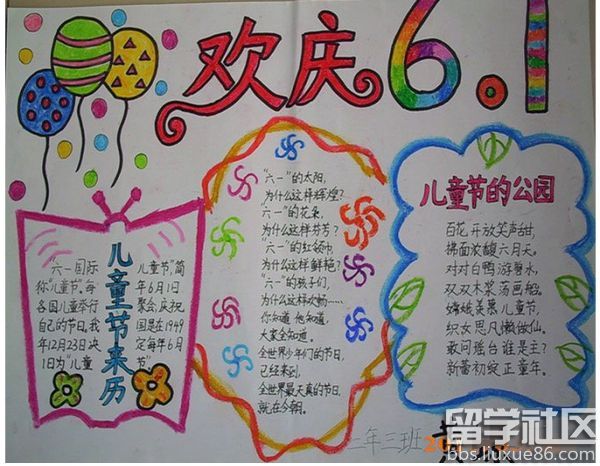 欢庆6.1
儿童节来历
六一国际儿童节"简
称"儿童节",每年6月1
各国儿童举行聚会,庆祝
自己的节日。我国是在1949
年12月23日决定每年6月
1日为"儿童节"
"六一"的太阳,
为什么这样辉煌?
"六一"的花朵,
为什么这样芬芳?
"六一"的红领巾
为什么这样鲜艳?
"六一"的孩子们,
为什么这样欢畅……
你知道 他知道,
大家全知道。
全世界少年们的节日,
已经来到,
全世界最天真的节日,
就在今朝。
儿童节的公园
百花开放笑声甜,
拂面浓馥六月天。
对对白鸭游碧水,
双双木桨荡画船。
嫦娥羡慕儿童节,
织女思凡懒做仙。
敢问瑶台谁是主?
新蕾初绽正童年。
二年三班
留学社区
bbs.liuxue86.com